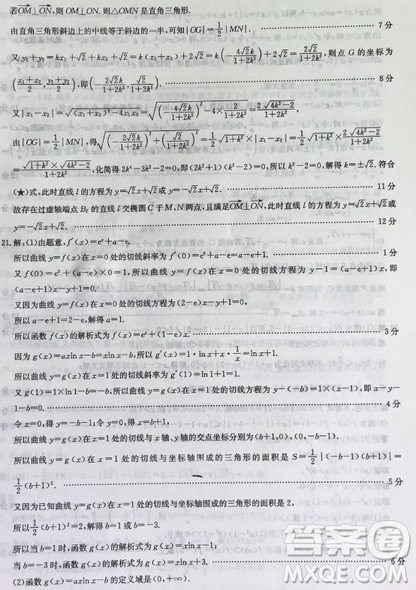 若OM⊥ON,则 OM⊥ON,则△OMN 是直角三角形.
由直角三角形斜边上的中线等于斜边的一半,可知|OG|=1/2|MN|. ……7分
又 y₁+y₂=kx₁+√2+kx₂+√2=k(x₁+x₂)+2√2=k(-4√2k/(1+2k²))+2√2=2√2/(1+2k²),则点 G 的坐标为
((x₁+x₂)/2,(y₁+y₂)/2),即(-2√2k/(1+2k²),√2/(1+2k²)). ……8分
又|x₁-x₂|=√((x₁+x₂)²-4x₁x₂)=√((-4√2k/(1+2k²))²-4×2/(1+2k²))=2√(4k²-2)/(1+2k²),
由|OG|=1/2|MN|,得√((-2√2k/(1+2k²))²+(√2/(1+2k²))²)=1/2√(1+k²)×|x₁-x₂|=1/2√(1+k²)×2√(4k²-2)/(1+2k²)
=√(1+k²)×√(4k²-2)/(1+2k²),化简得 2k⁴-3k²-2=0,即(2k²+1)(k²-2)=0,所以 k²-2=0,解得 k=±√2.符合
(★)式,此时直线 l 的方程为 y=√2x+√2或 y=-√2x+√2. ……11分
故存在过虚轴端点 B₂的直线 l 交椭圆 C 于 M,N两点,且满足OM⊥ON,此时直线 l 的方程为 y=√2x+√2或
y=-√2x+√2. ……12分
21.解:(1)由题意,f′(x)=eˣ+a-e.
所以曲线 y=f(x)在 x=0 处的切线斜率为 f′(0)=e⁰+a-e=a-e+1. ……1分
又 f(0)=e⁰+(a-e)×0=1,所以曲线 y=f(x)在 x=0 处的切线方程为 y-1=(a-e+1)(x-0),即
(a-e+1)x-y+1=0.
又因为曲线 y=f(x)在 x=0 处的切线方程为(2-e)x-y+1=0,
所以 a-e+1=2-e,解得 a=1.
所以函数 f(x)的解析式为 f(x)=eˣ+(1-e)x. ……3分
因为 g(x)=axln x-b=xln x-b,所以 g′(x)=1·ln x+x·1/x=ln x+1.
所以曲线 y=g(x)在 x=1 处的切线斜率为 g′(1)=ln 1+1=1.
又 g(1)=1×ln 1-b=-b,所以曲线 y=g(x)在 x=1 处的切线方程为 y-(-b)=1×(x-1),即 x-y-
1-b=0. ……4分
令 x=0,得 y=-b-1;令 y=0,得 x=b+1.
所以曲线 y=g(x)在 x=1 处的切线与 x 轴,y 轴的交点坐标分别为(b+1,0),(0,-b-1).
所以曲线 y=g(x)在 x=1 处的切线与坐标轴围成的三角形的面积是 S=1/2|(-b-1)(b+1)|=
1/2(b+1)². ……5分
又因为已知曲线 y=g(x)在 x=1 处的切线与坐标轴围成的三角形的面积是2,
所以1/2(b+1)²=2,解得 b=1 或 b=-3.
所以当 b=1 时,函数 g(x)的解析式为 g(x)=xln x-1,
当 b=-3 时,函数 g(x)的解析式为 g(x)=xln x+3. ……6分
(2)函数 g(x)=axln x-b 的定义域是(0,+∞).